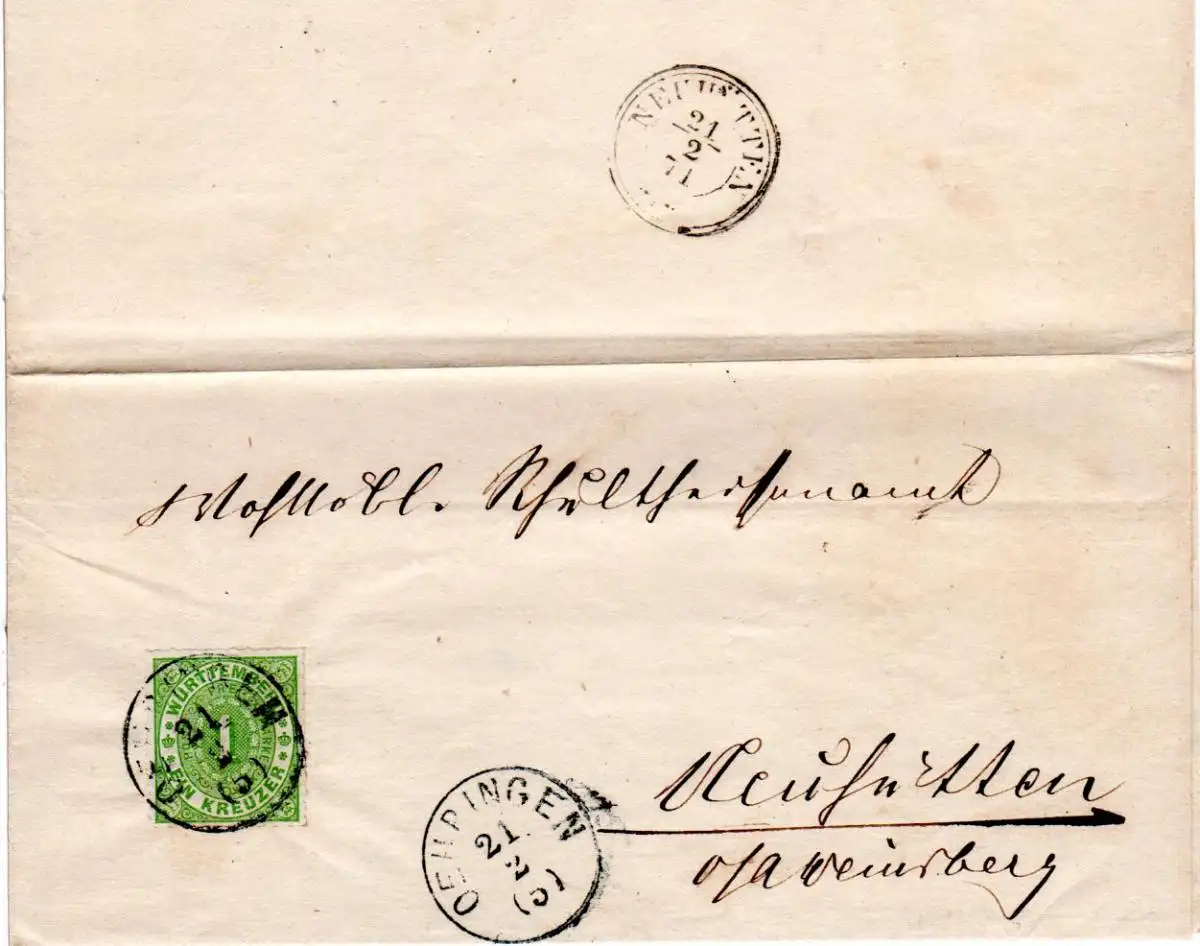 NEUHÜTTEN
21
2
71
Wohllöbl. Schultheissenamt
WÜRTTEMBERG
OEHRINGEN
21
2
(5)
1
EIN KREUZER
OEHRINGEN
21
2
(5)
Neuhütten
O/A Weinsberg